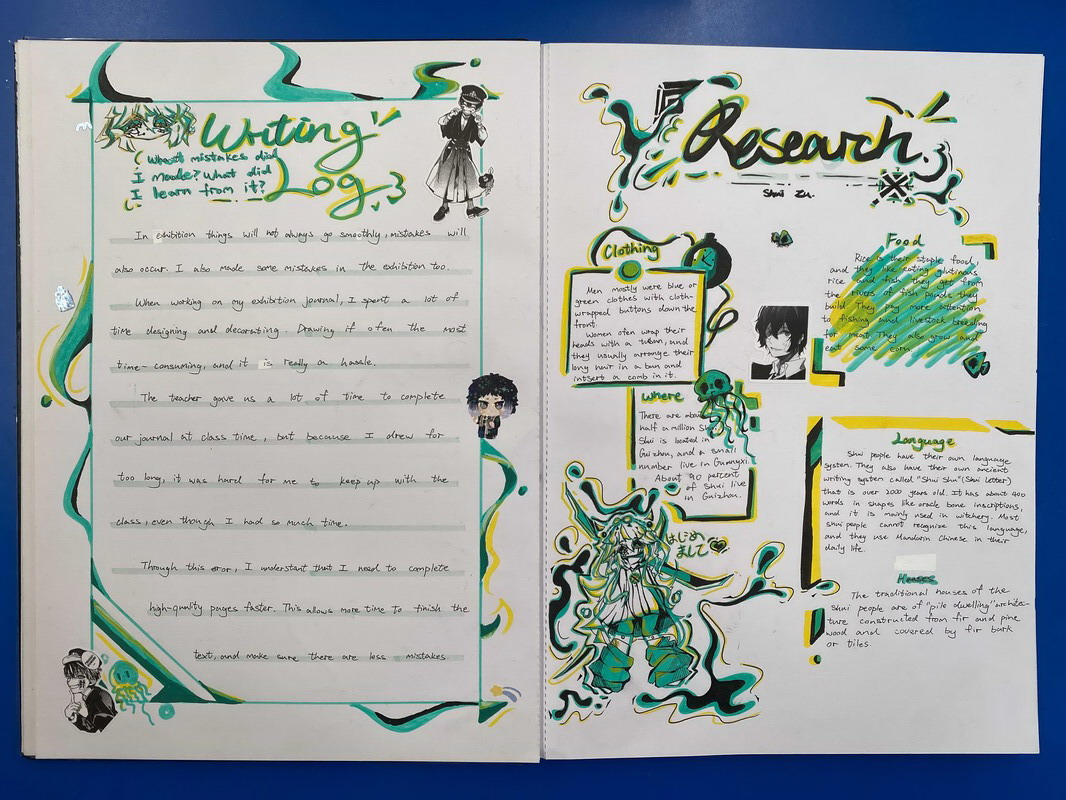 Writing
Log
What mistakes did
I made? What did
I learn from it?
In exhibition things will not always go smoothly, mistakes will
also occur. I also made some mistakes in the exhibition too.
When working on my exhibition journal, I spent a lot of
time designing and decorating. Drawing if often the most
time-consuming, and it is really a hassle.
The teacher gave us a lot of time to complete
our journal at class time, but because I drew for
too long, it was hard for me to keep up with the
class, even though I had so much time.
Through this error, I understand that I need to complete
high-quality pages faster. This allows more time to finish the
text, and make sure there are less mistakes
Research
Shui Zu.
Clothing
Men mostly wear blue or
green clothes with cloth-
wrapped buttons down the
front.
Women ofen wrap their
heads with a tuban, and
they usually arrange their
long hair in a bun and
intsert a comb in it.
Where
There are about
half a million Sh
Shui is located in
Guizhou, and a small
number live in Guangxi.
About 90 percent
of Shui live
in Guizhou.
はじめ
まして
Food
Rice is their staple food,
and they like eating glutinous
rice and fish they get from
the rivers of fish ponds they
build. They pay more attention
to fishing and livestock breeding
for meat. They also grow and
eat some corn.
Language
Shui people have their own language
system. They also have their own ancient
writing system called "Shui Shu" (Shui Letter)
that is over 2000 years old. It has about 400
words in shapes like oracle bone inscriptions,
and it is mainly used in witchery. Most
shui people cannot recognize this language,
and they use Mandarin Chinese in their
daily life.
Houses
The traditional houses of the
Shui people are of "pile dwelling" architec-
ture constructed from fir and pine
wood and covered by fir bark
or tiles.